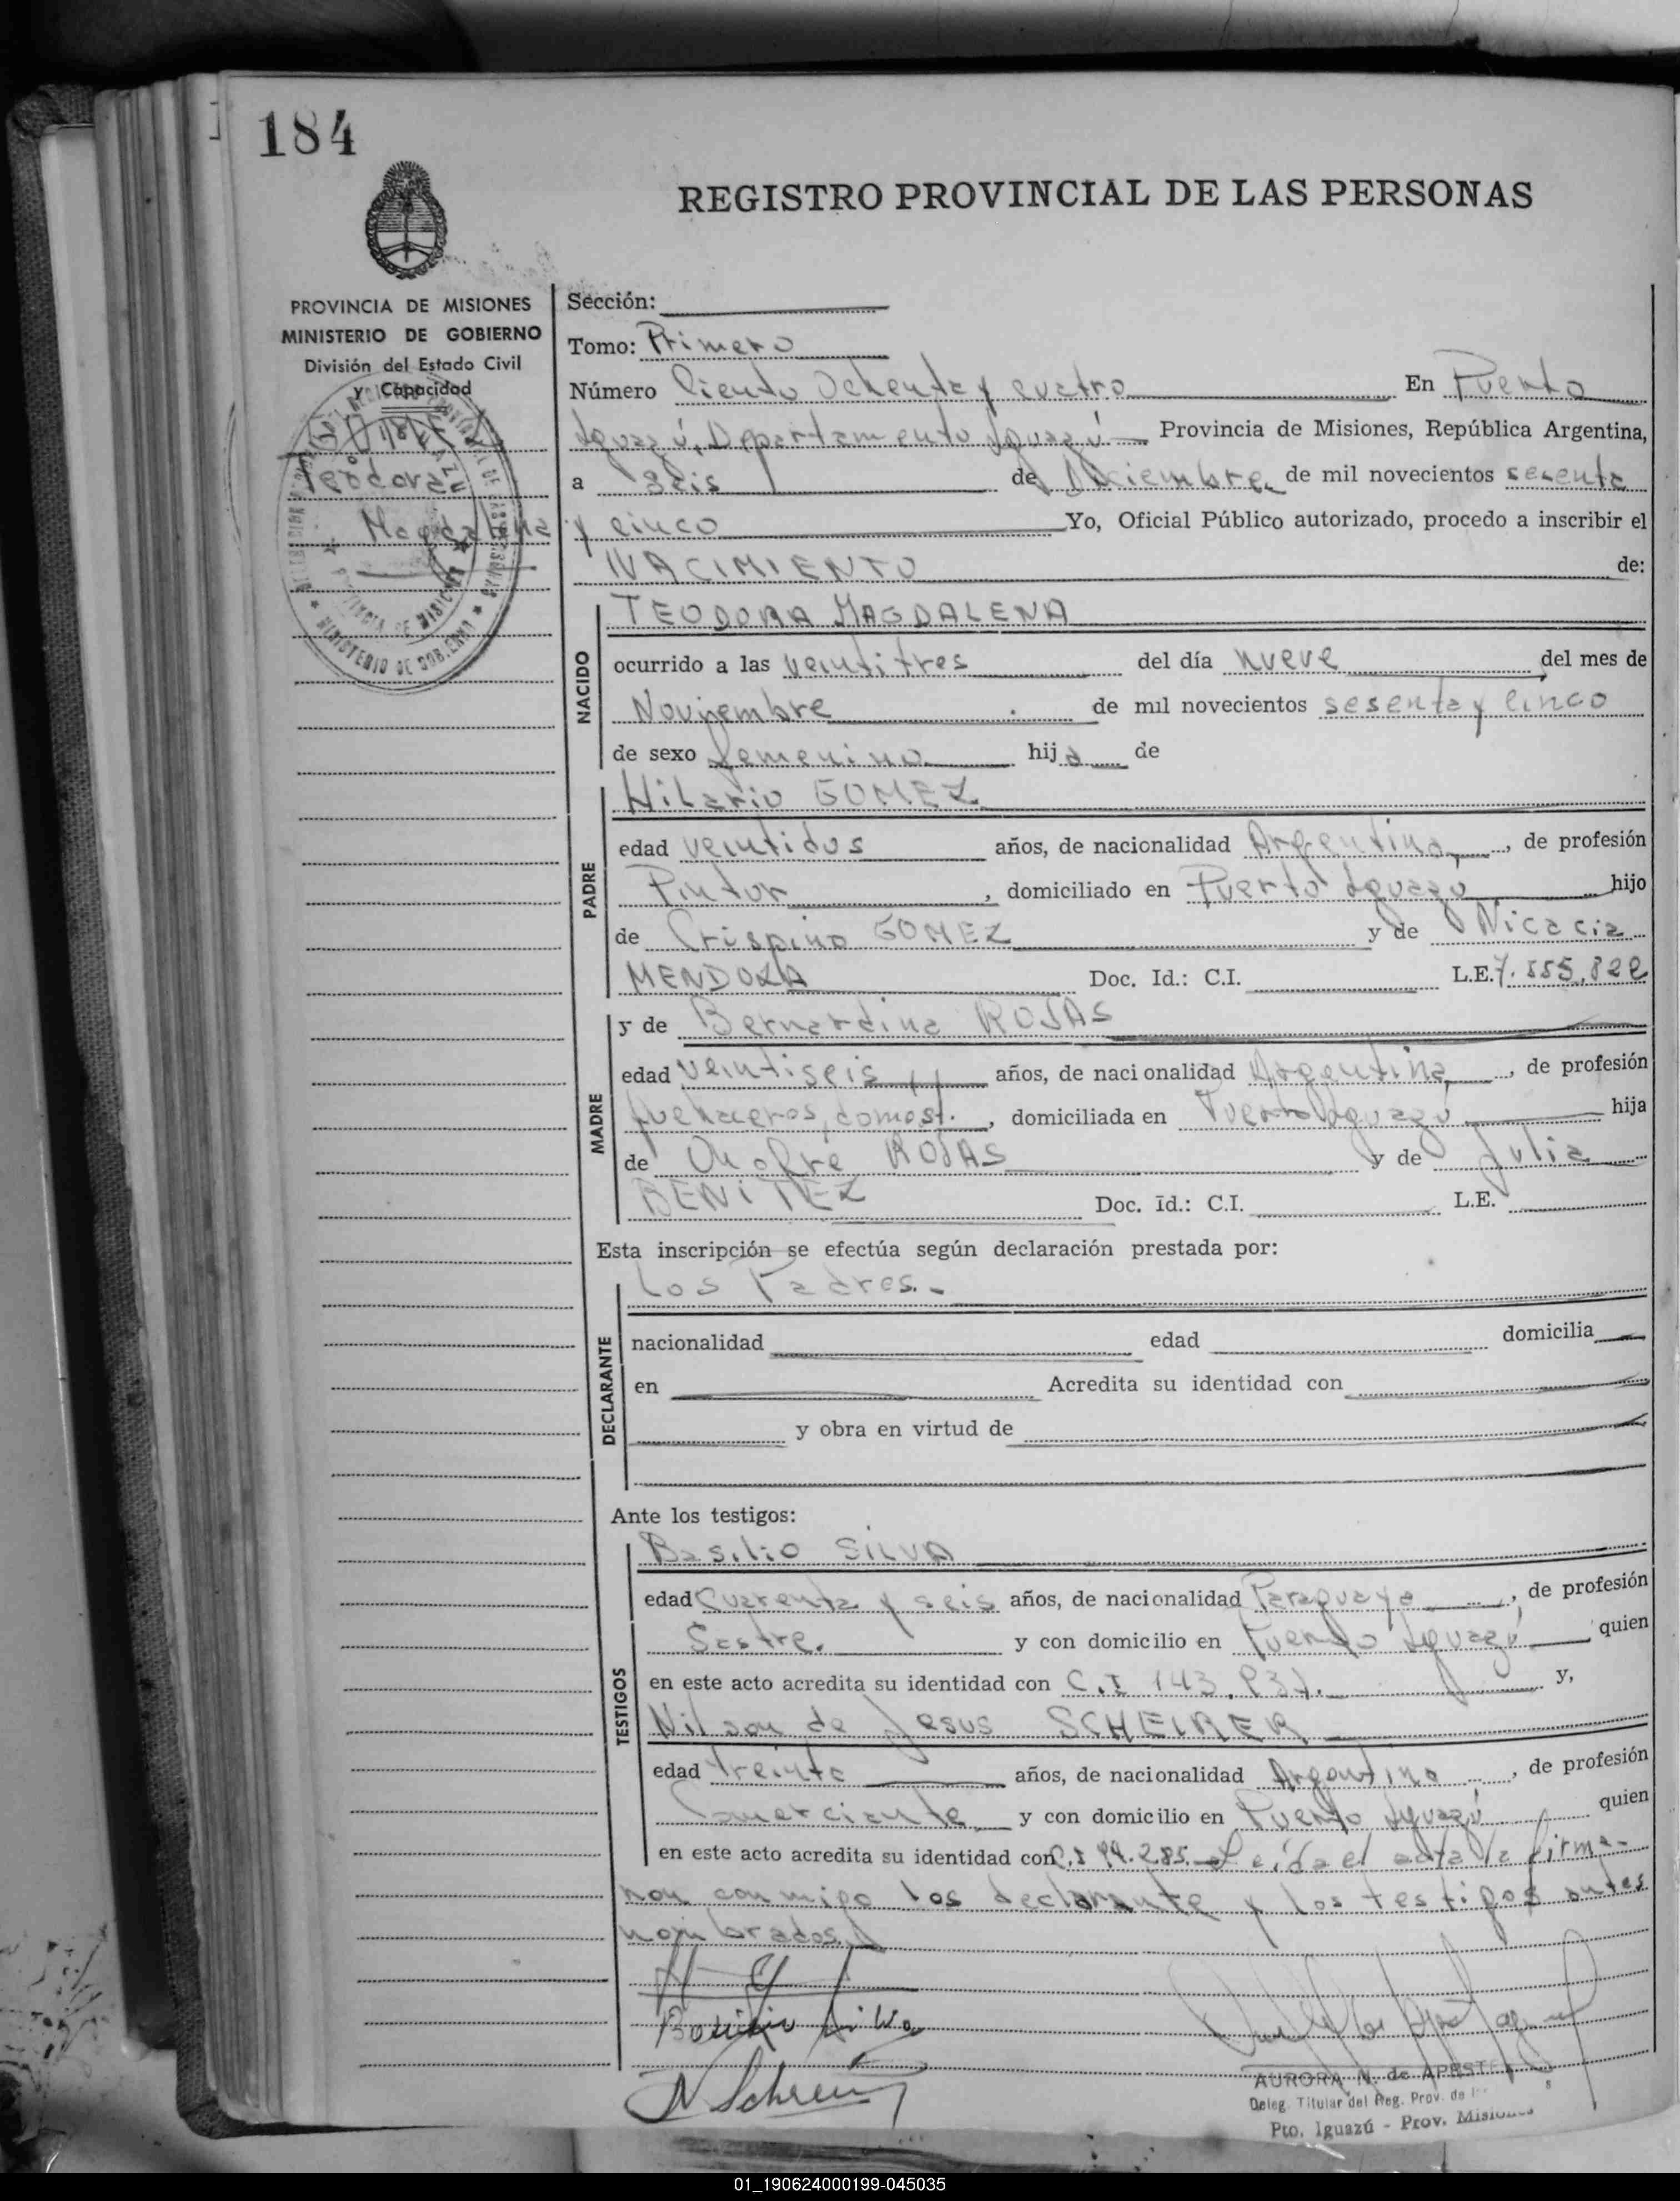 184
REGISTRO PROVINCIAL DE LAS PERSONAS
PROVINCIA DE MISIONES
MINISTERIO DE GOBIERNO
División del Estado Civil
y Capacidad
Teodora
Magdalena
Sección:
Tomo: Primero
Número Ciento Ochenta y cuatro En Puerto
Iguazú, Departamento Iguazú Provincia de Misiones, República Argentina,
a seis de Diciembre de mil novecientos sesenta
y cinco Yo, Oficial Público autorizado, procedo a inscribir el
NACIMIENTO de:
NACIDO
TEODORA MAGDALENA
ocurrido a las veintitres del día nueve del mes de
Noviembre de mil novecientos sesenta y cinco
de sexo femenino hija de
PADRE
Hilario GOMEZ
edad veintidos años, de nacionalidad Argentina, de profesión
Pintor, domiciliado en Puerto Iguazú hijo
de Crispino GOMEZ y de Nicacia
MENDOZA Doc. Id.: C.I. L.E. 7.555.822
MADRE
y de Bernardina ROJAS
edad veintiseis años, de nacionalidad Argentina, de profesión
quehaceres domest., domiciliada en Puerto Iguazú hija
de Onofre ROJAS y de Julia
BENITEZ Doc. Id.: C.I. L.E.
Esta inscripción se efectúa según declaración prestada por:
DECLARANTE
Los Padres.-
nacionalidad edad domicilia
en Acredita su identidad con
y obra en virtud de
Ante los testigos:
TESTIGOS
Basilio SILVA
edad Cuarenta y seis años, de nacionalidad Paraguaya, de profesión
Sastre. y con domicilio en Puerto Iguazú quien
en este acto acredita su identidad con C.I 143.837. y,
Nilson de Jesus SCHEIRER
edad treinta años, de nacionalidad Argentino, de profesión
Comerciante y con domicilio en Puerto Iguazú quien
en este acto acredita su identidad con C.I 94.285.- Leída el acta la firma-
non conmigo los declarante y los testigos antes
nombrados.
Basilio Silva
AURORA N. de
Deleg. Titular del Reg. Prov. de
Pto. Iguazú - Prov. Misiones
01_190624000199-045035